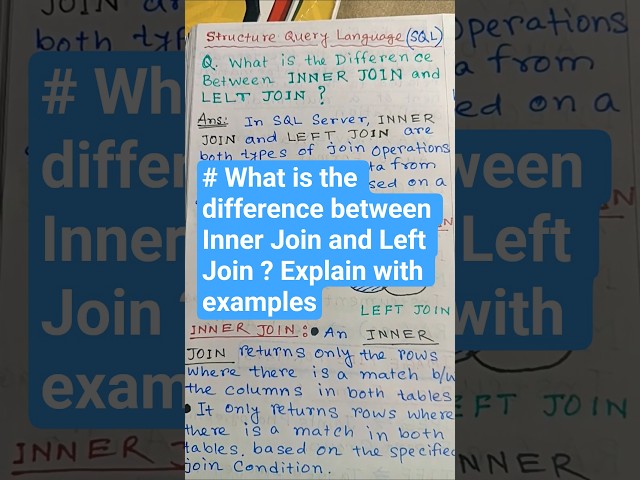 Structure Query Language (SQL)
Q. What is the Difference
Between INNER JOIN and
LELT JOIN ?
Ans: In SQL Server, INNER
JOIN and LEFT JOIN are
both types of join operations
from
sed on a
# What is the
difference between
Inner Join and Left
Join ? Explain with
examples
LEFT JOIN
INNER JOIN : • An INNER
JOIN returns only the rows
where there is a match b/w
the columns in both tables
• It only returns rows where
there is a match in both
tables. based on the specified
join Condition.
JOIN
both typ
# What
differen
Inner
Join
exam
INNER
perations
a from
ed on a
ween
Left
with
EFT JOIN
NNER